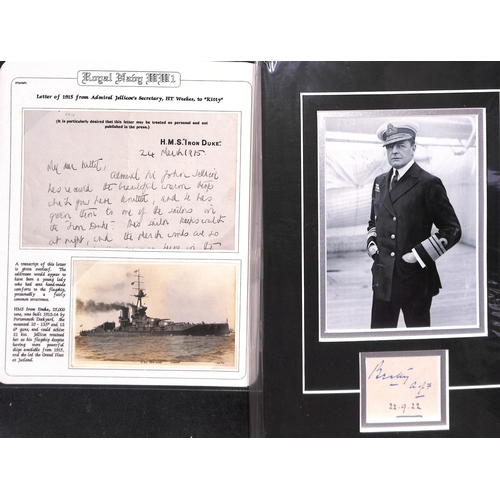 Royal Navy WW1
Letter of 1915 from Admiral Jellicoe's Secretary, HT Weekes, to "Kitty"
(It is particularly desired that this letter may be treated as personal and not
published in the press.)
H.M.S. "IRON DUKE".
24 March 1915
My dear Kitty,
Admiral Sir John Jellicoe
has received the beautiful warm
which you have knitted, and he has
given them to one of the sailors in
the Iron Duke. This sailor keeps watch
at night, and the March winds are so
here in the
A transcript of this letter
is given overleaf. The
addressee would appear to
have been a young lady
who had sent hand-made
comforts to the flagship,
presumably a fairly
common occurrence.
HMS Iron Duke, 25,000
tons, was built 1912-14 by
Portsmouth Dockyard. She
mounted 10 - 13.5" and 12
6" guns, and could achieve
21 kts. Jellicoe retained
her as his flagship despite
having more powerful
ships available from 1915,
and she led the Grand Fleet
at Jutland.
Beatty
22.9.22